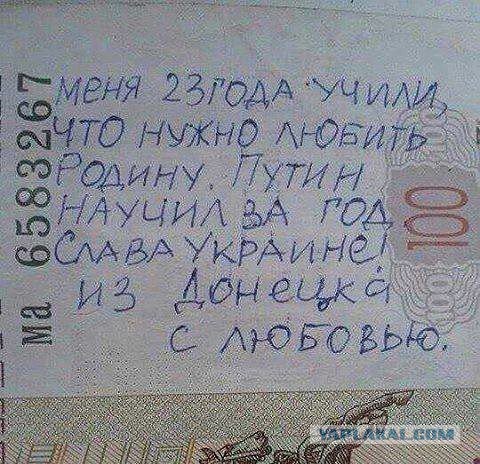 меня 23 года учили,
что нужно любить
Родину. Путин
научил за год.
Слава Украине!
из Донецка
с любовью.
ма 6583267
100
100
100
YAPLAKAL.COM